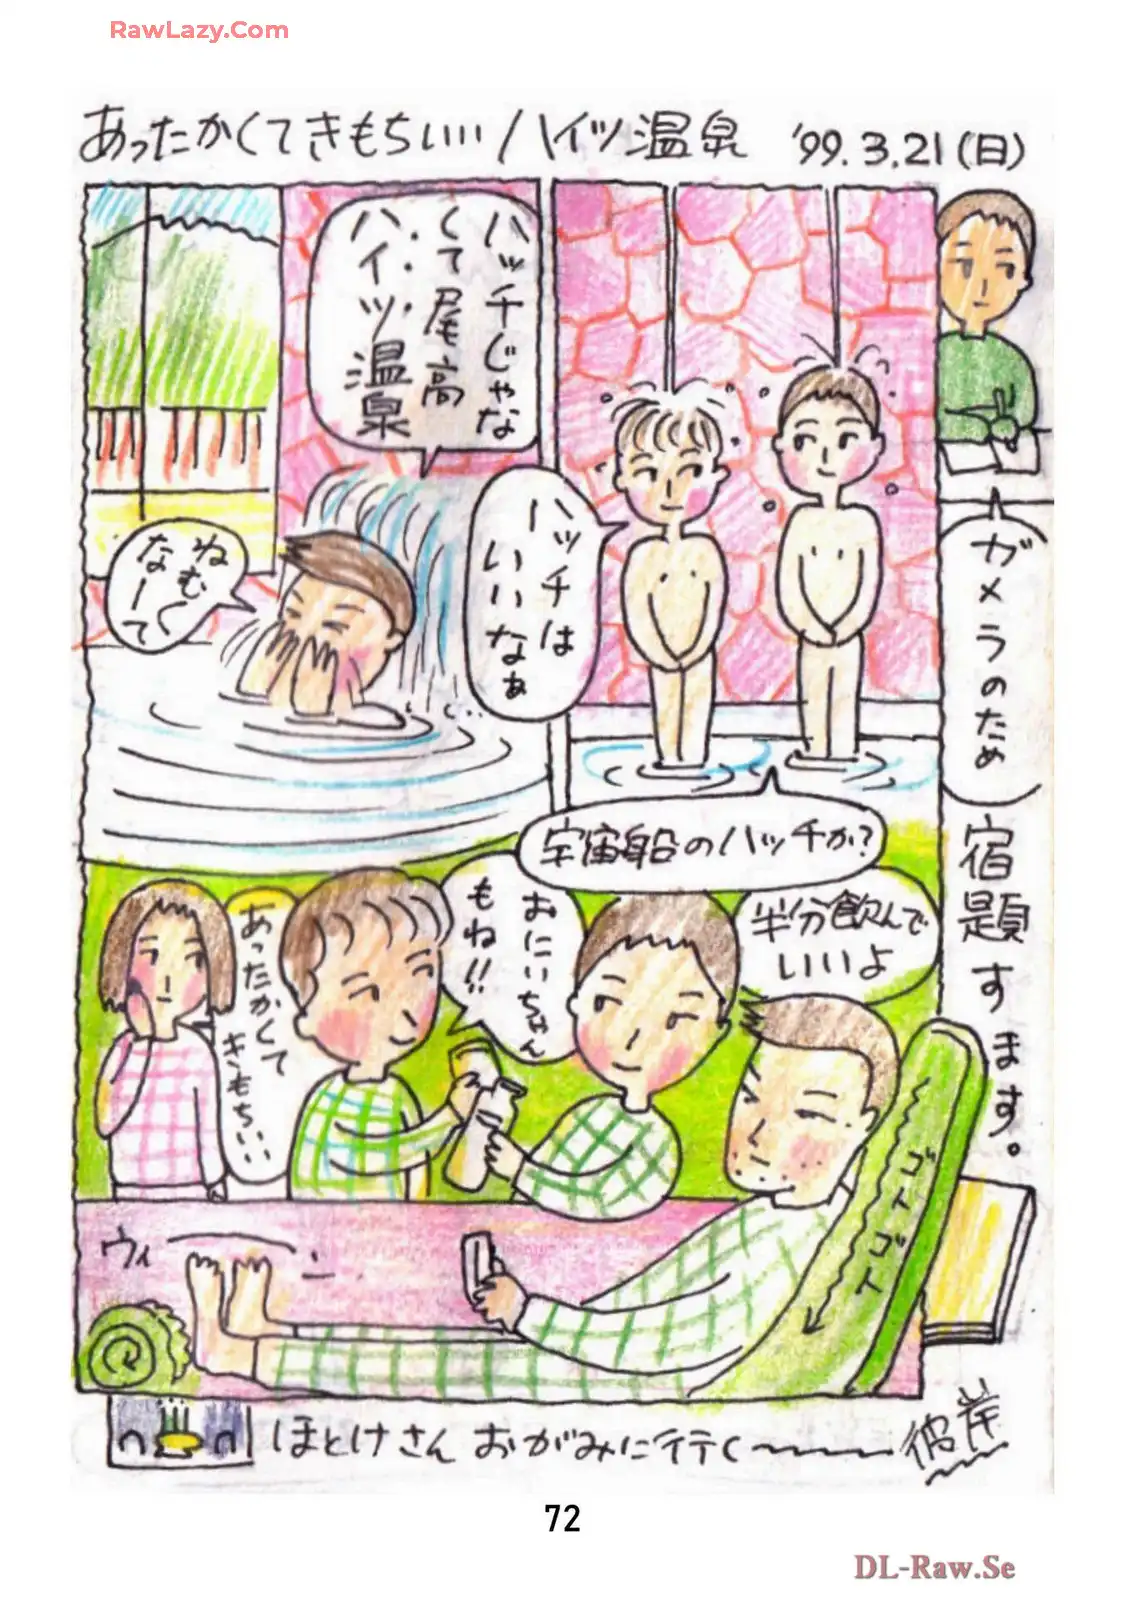 RawLazy.Com
あったかくてきもちいい ハイツ温泉 '99.3.21(日)
ハッチじゃな
くて尾高
ハイツ温泉
ねむく
なーて
ハッチは
いいなぁ
宇宙船のハッチか?
ガメラのため
宿題すます。
あったかくて
きもちいい
おにいちゃん
もね!!
半分飲んで
いいよ
ゴトゴト
ウィーン
ほとけさん おがみに行く〜 彼岸
72
DL-Raw.Se